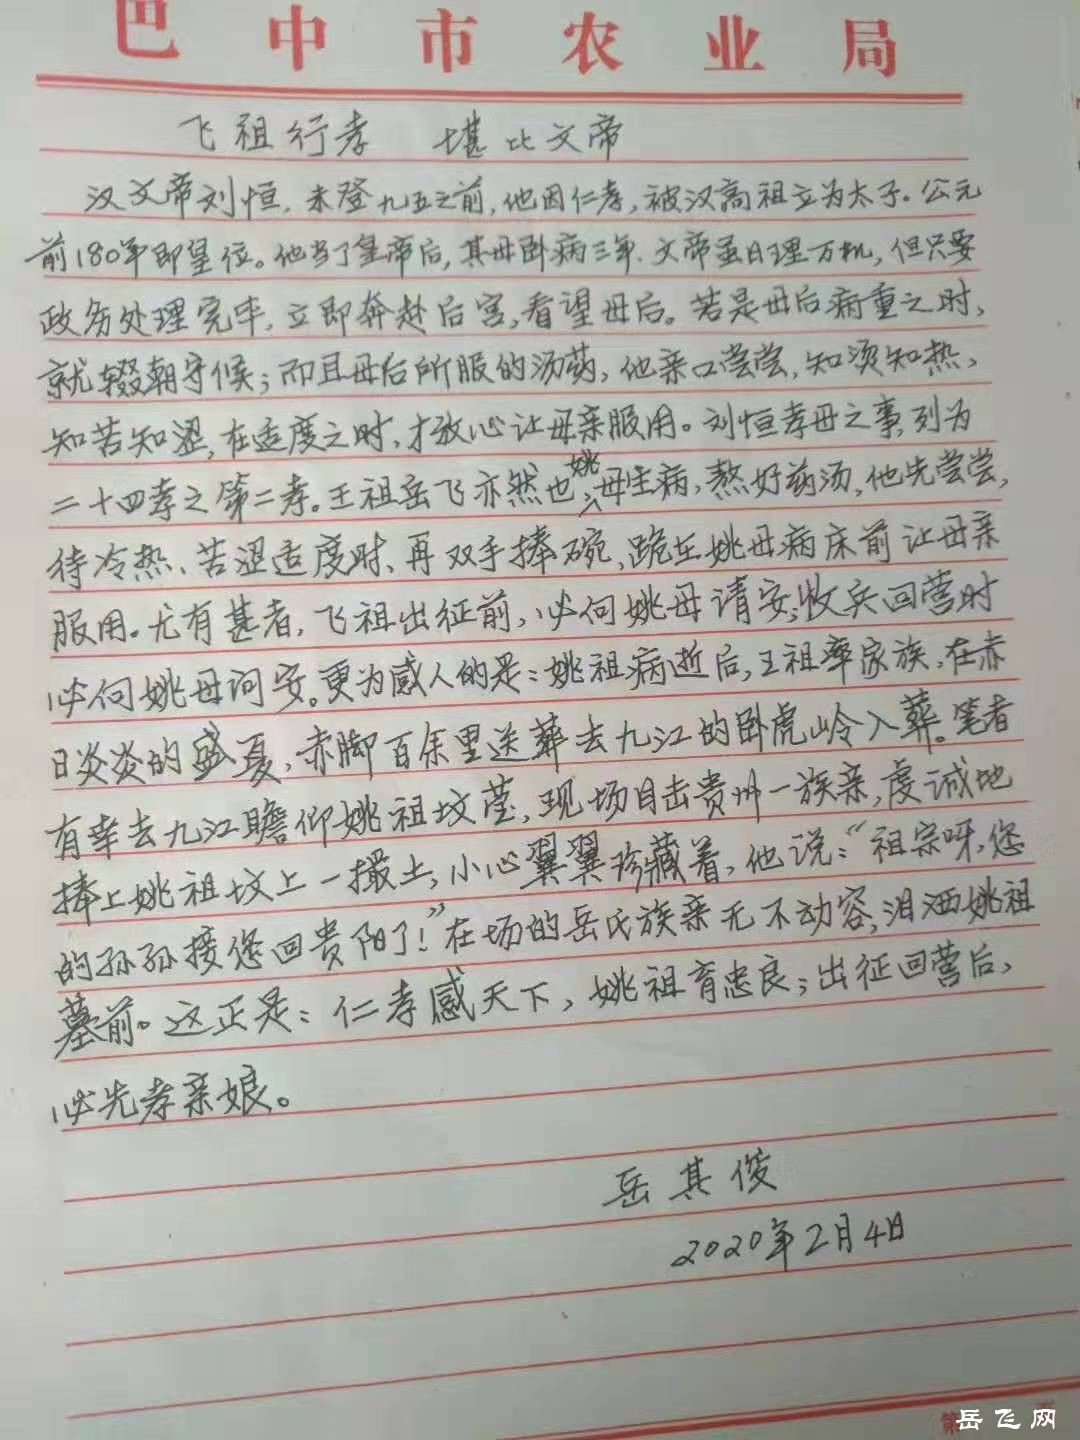 巴中市农业局
飞祖行孝 堪比文帝
汉文帝刘恒，未登九五之前，他因仁孝，被汉高祖立为太子。公元
前180年即皇位。他当了皇帝后，其母卧病三年，文帝虽日理万机，但只要
政务处理完毕，立即奔赴后宫，看望母后。若是母后病重之时，
就辍朝守候；而且母后所服的汤药，他亲口尝尝，知须知热，
知苦知涩，在适度之时，才放心让母亲服用。刘恒孝母之事，列为
二十四孝之第二孝。王祖岳飞亦然也，姚母生病，熬好药汤，他先尝尝，
待冷热、苦涩适度时、再双手捧碗，跪在姚母病床前让母亲
服用。尤有甚者，飞祖出征前，必向姚母请安；收兵回营时
必向姚母问安。更为感人的是：姚祖病逝后，王祖率家族，在赤
日炎炎的盛夏，赤脚百余里送葬去九江的卧虎岭入葬。笔者
有幸去九江瞻仰姚祖坟莹，现场目击贵州一族亲，虔诚地
捧上姚祖坟上一撮土，小心翼翼珍藏着，他说：“祖宗呀，您
的孙孙接您回贵阳了！”在场的岳氏族亲无不动容，泪洒姚祖
墓前。这正是：仁孝感天下，姚祖育忠良；出征回营后，
必先孝亲娘。
岳其俊
2020年2月4日
第
岳飞网